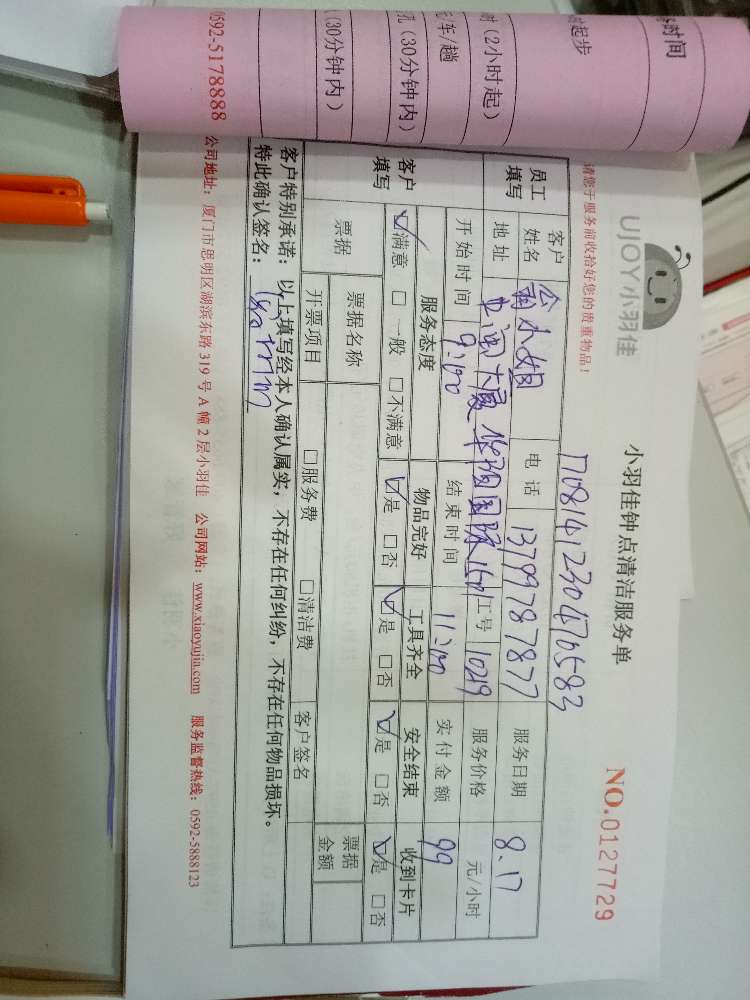 时间
起步
时(2小时起)
/车/趟
孔(30分钟内)
(30分钟内)
0592-5178888
UJOY小羽佳
小羽佳钟点清洁服务单
NO.0127729
请您于服务前收拾好您的贵重物品!
1708141230470583
员工填写
客户姓名 小姐 电话 13799787877 服务日期 8.17
地址 东润大厦华强国际16n 工号 10219 服务价格 元/小时
开始时间 9:00 结束时间 11:00 实付金额 99
客户填写
服务态度 物品完好 工具齐全 安全结束 收到卡片
☑满意 □一般 □不满意 ☑是 □否 ☑是 □否 ☑是 □否 ☑是 □否
票据 票据名称 票据金额
开票项目 □服务费 □清洁费 客户签名
客户特别承诺:以上填写经本人确认属实,不存在任何纠纷,不存在任何物品损坏。
特此确认签名:
公司地址:厦门市思明区湖滨东路319号A幢2层小羽佳 公司网站:www.xiaoyujia.com 服务监督热线:0592-5888123